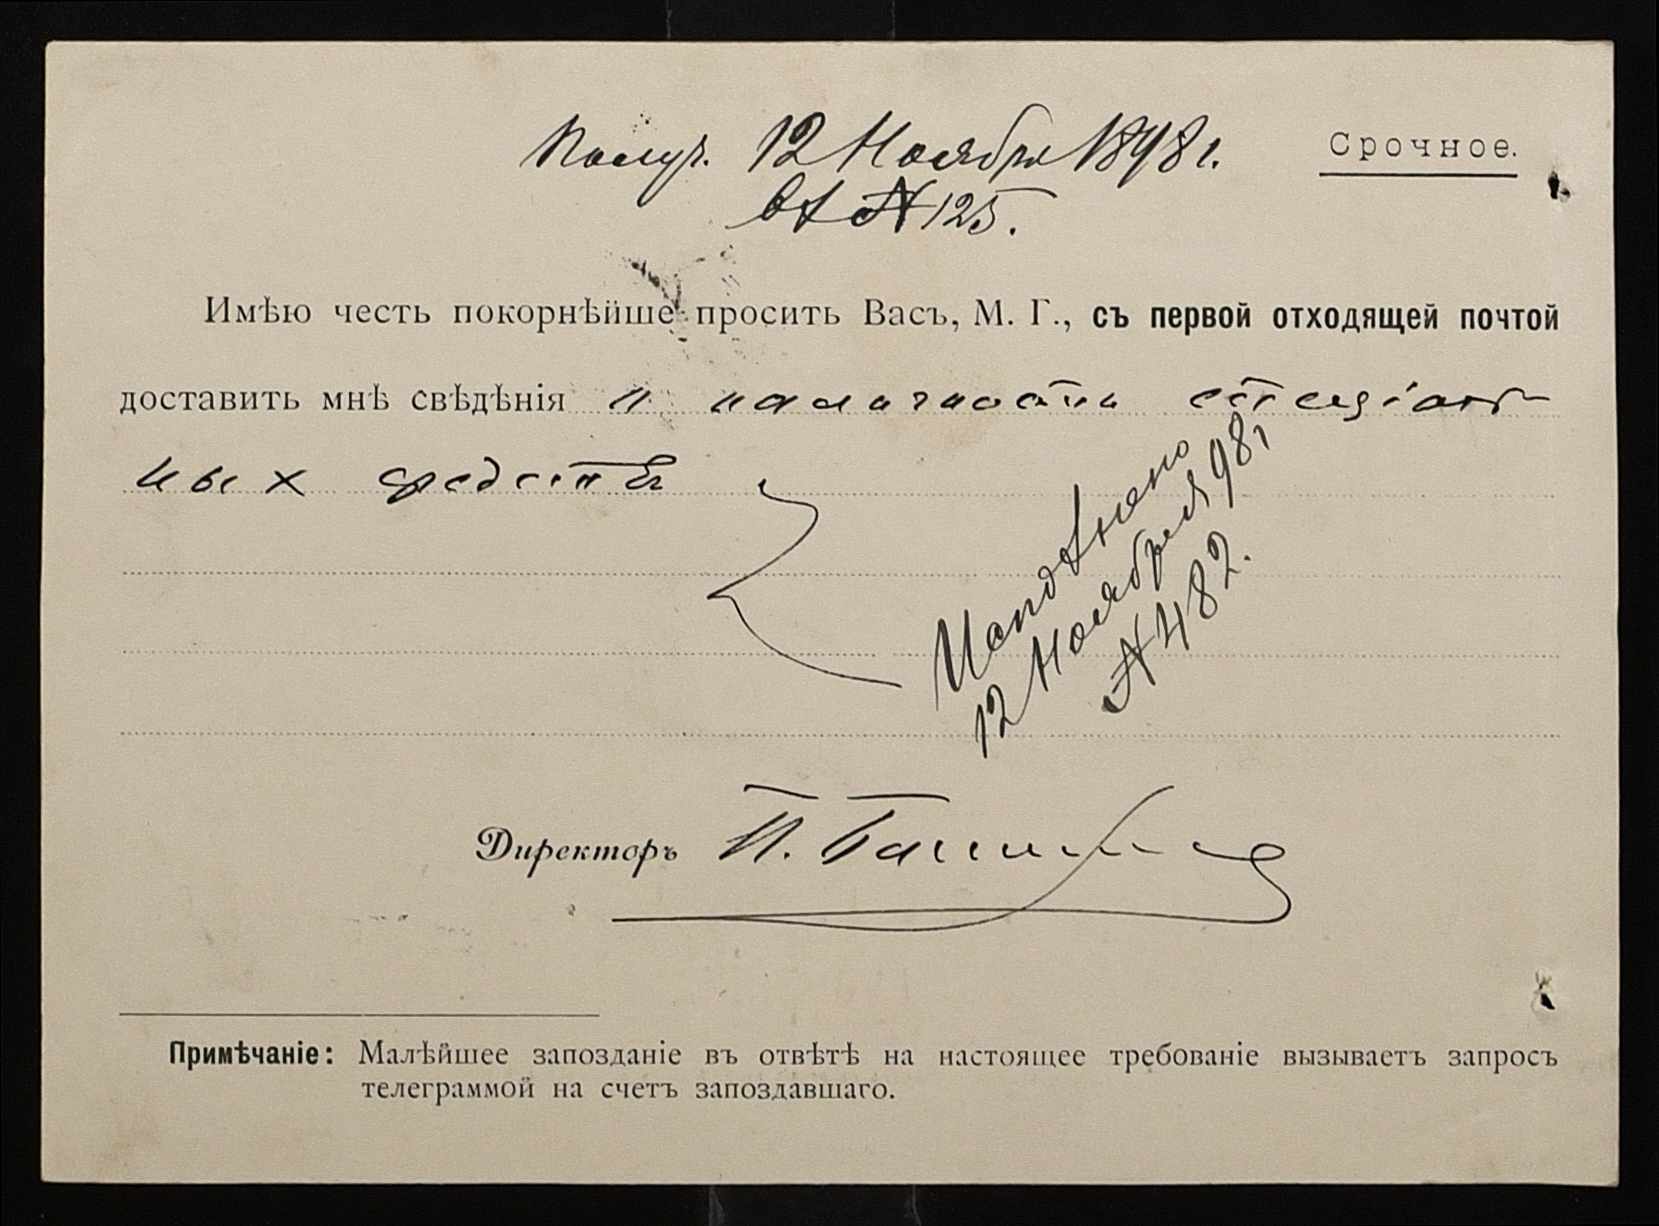 Получ. 12 Ноября 1898 г.
Срочное.
вх № 125.
Имѣю честь покорнѣйше просить Васъ, М. Г., съ первой отходящей почтой
доставить мнѣ свѣдѣнія о наличности спеціаль-
ныхъ средствъ
Исполнено
12 Ноября 98 г
№ 482.
Директоръ П.
Примѣчаніе: Малѣйшее запозданіе въ отвѣтѣ на настоящее требованіе вызываетъ запросъ
телеграммой на счетъ запоздавшаго.